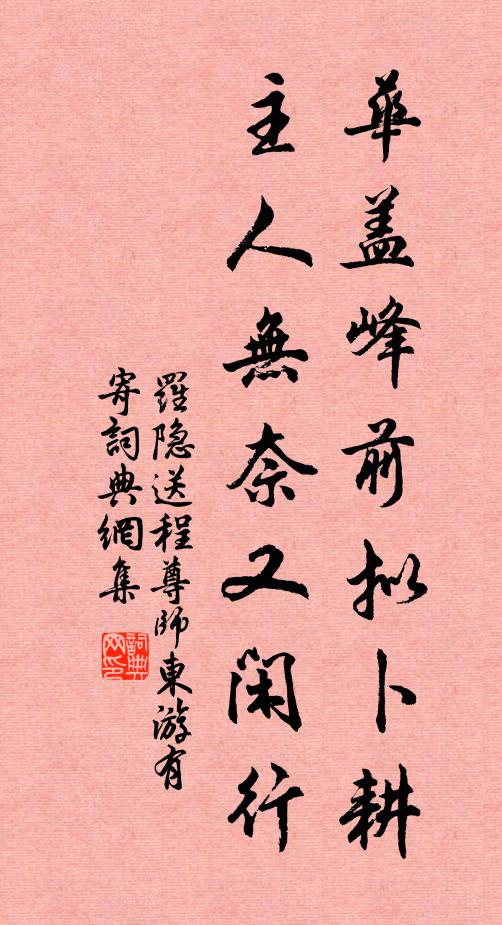 華蓋峰前擬卜耕
主人無奈又閑行
羅隐送程尊師東游有
寄詞典網集
詞典网印